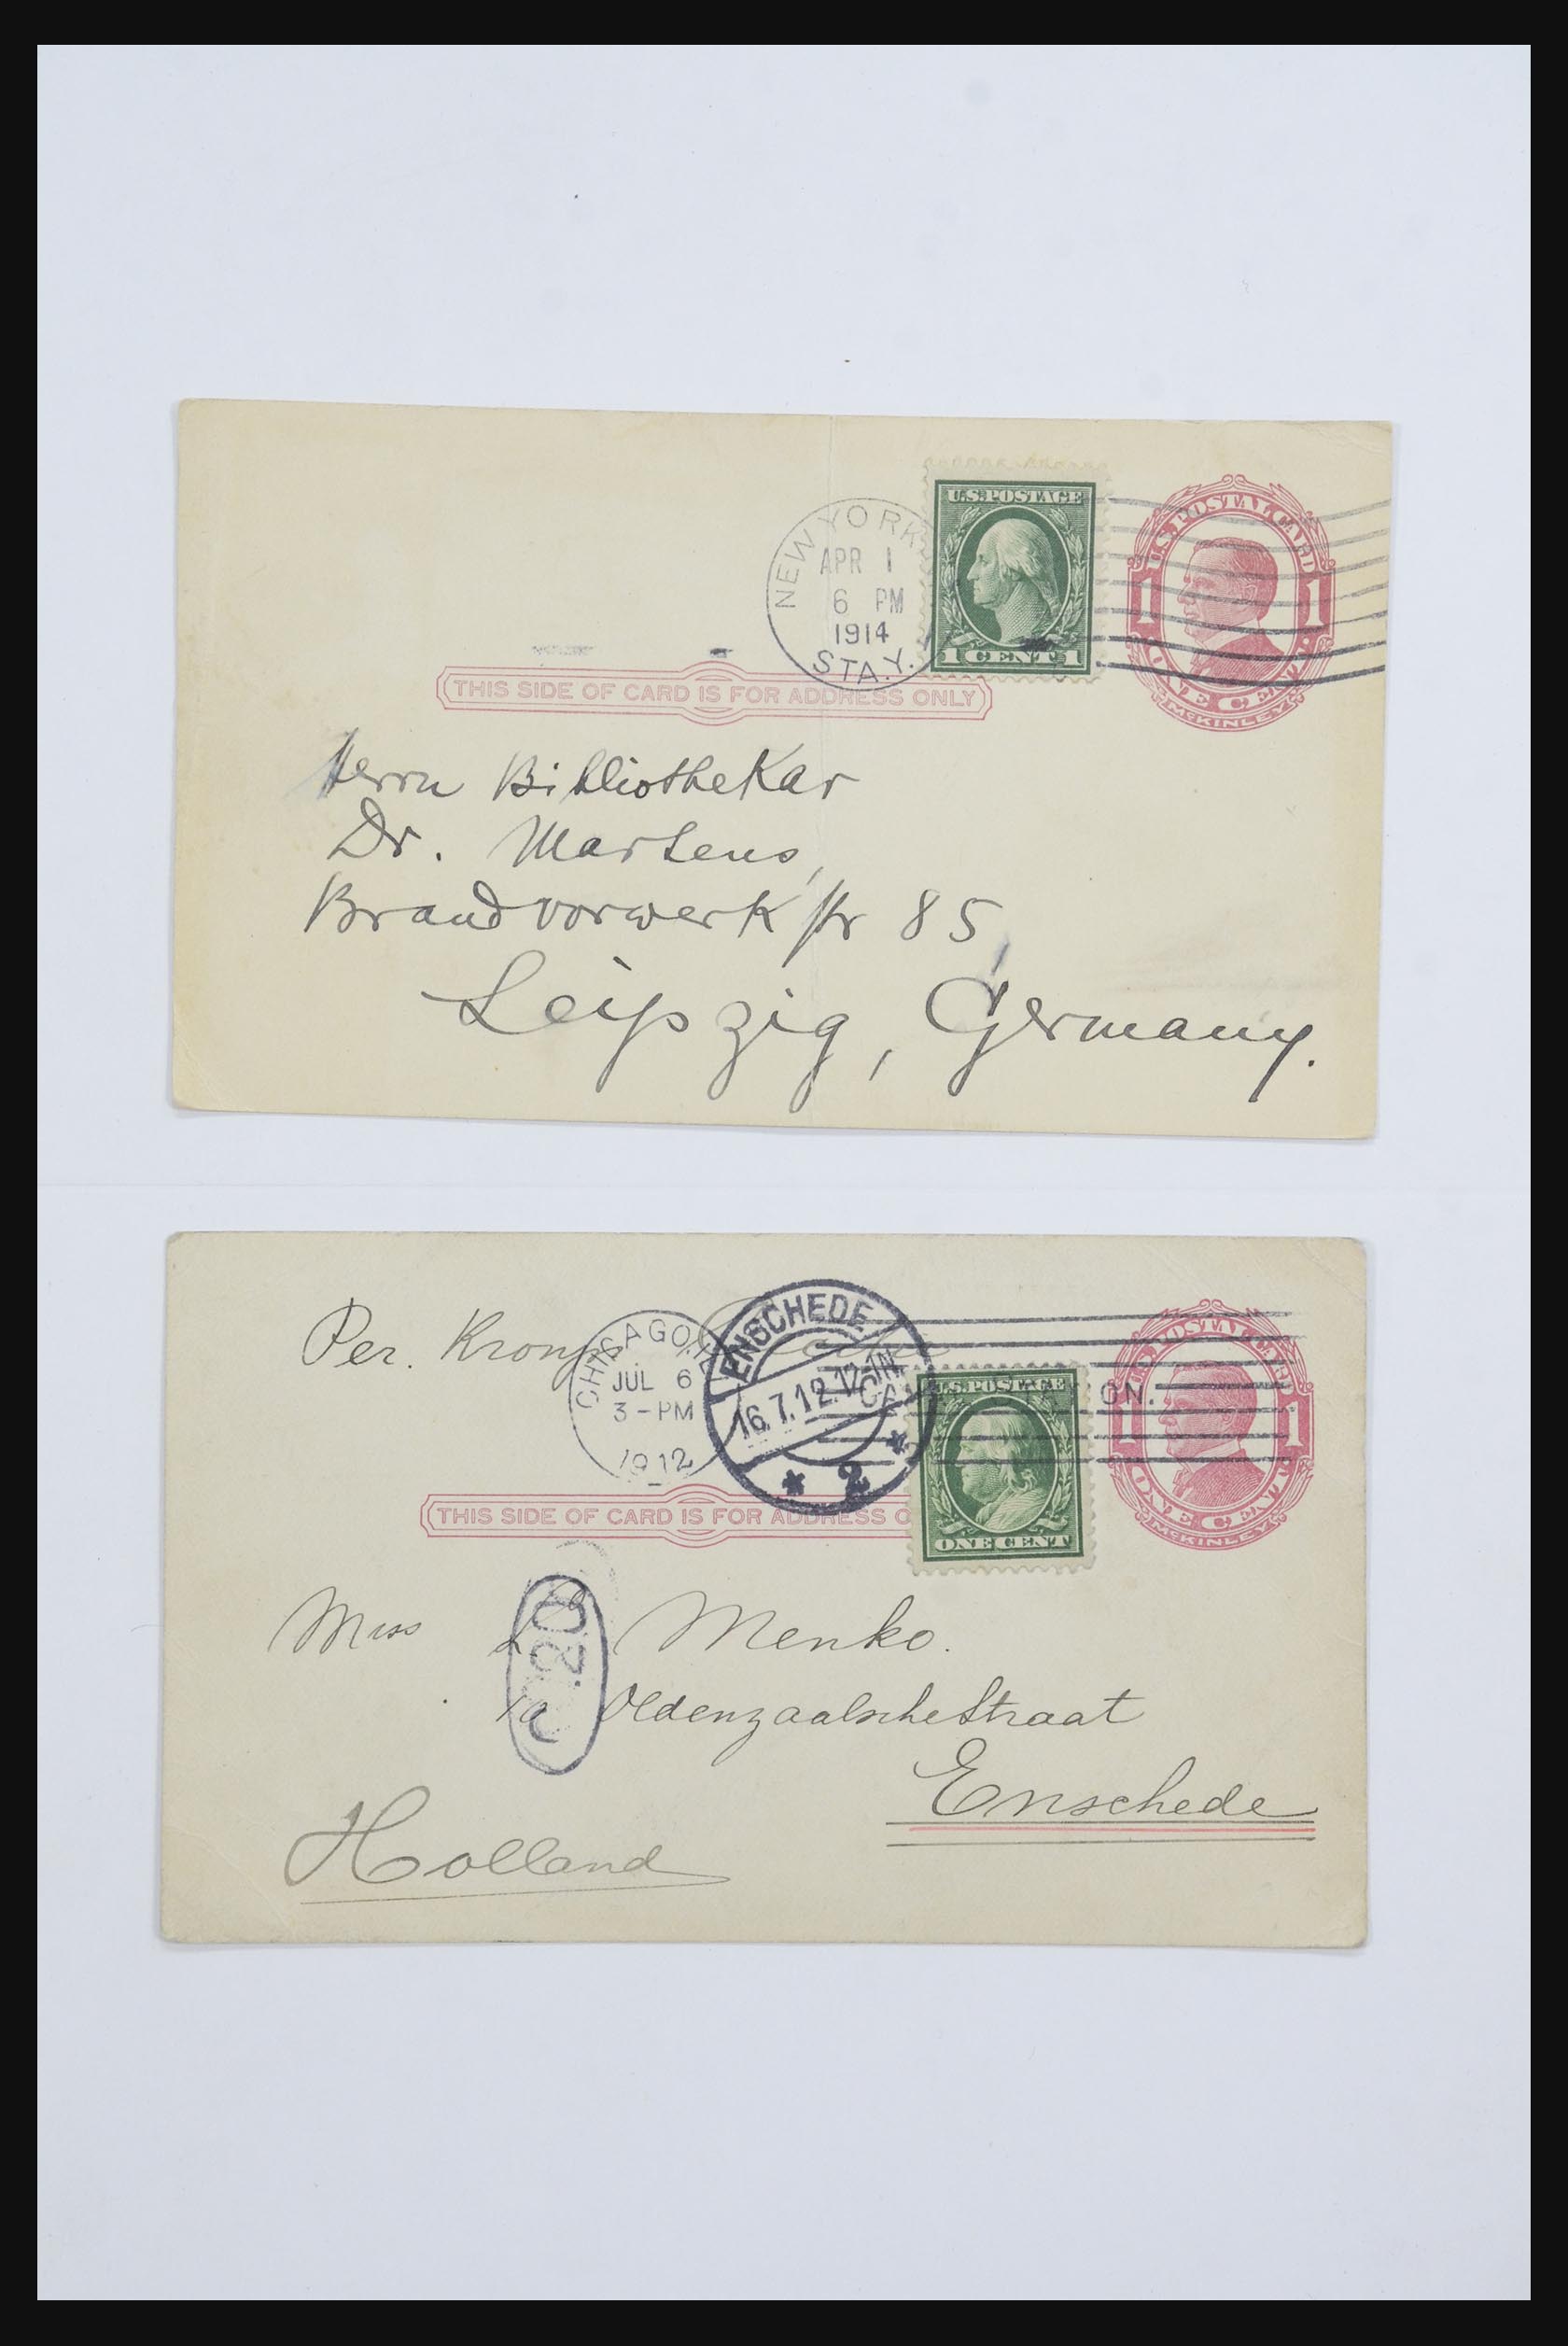 NEW YORK
APR 1
6 PM
1914
STA.Y.
U.S. POSTAGE
1 CENT 1
U.S. POSTAL CARD
1 1
ONE CENT
McKINLEY
THIS SIDE OF CARD IS FOR ADDRESS ONLY
Herrn Bibliothekar
Dr. Martens,
Brandvorwerkstr 85,
Leipzig, Germany.
Per. Kronp
CHICAGO, IL
JUL 6
3-PM
1912
ENSCHEDE
16.7.12.12-1N
2
CA ON.
U.S. POSTAGE
ONE CENT
POSTAL CAR
1 1
ONE CENT
McKINLEY
THIS SIDE OF CARD IS FOR ADDRESS O
Miss Menko.
20
Oldenzaalschestraat
Enschede
Holland